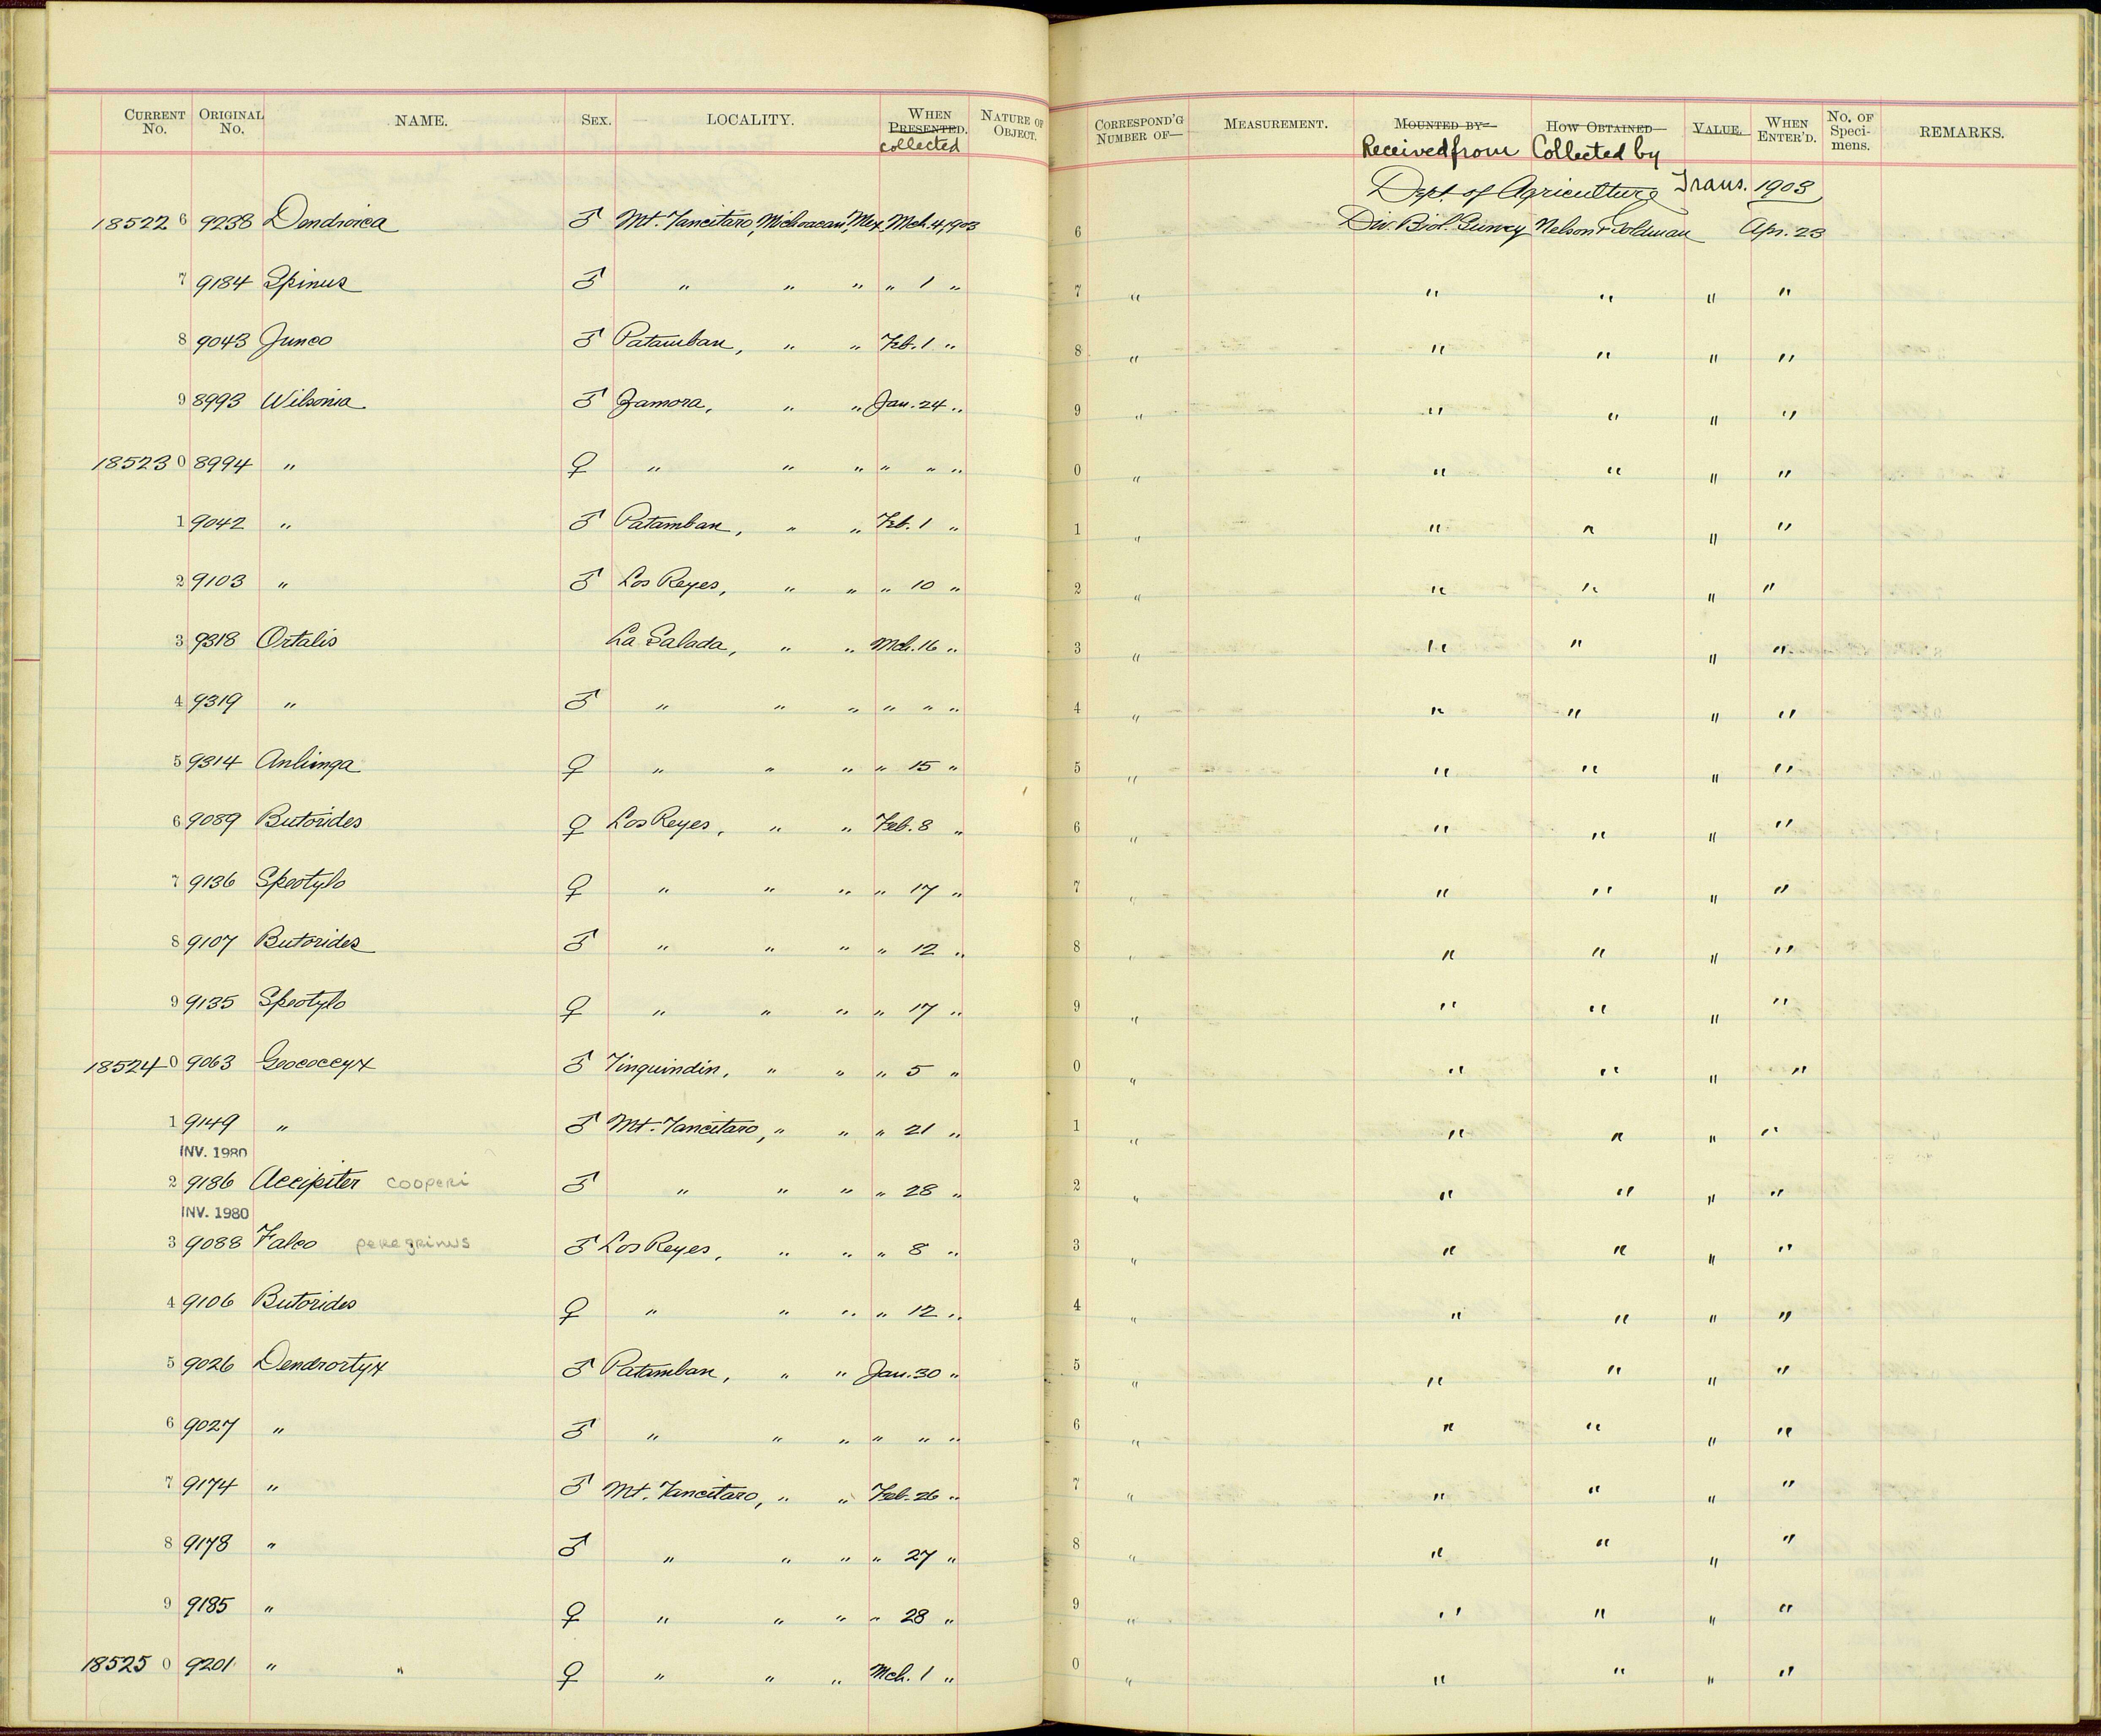 CURRENT No. ORIGINAL No. NAME. SEX. LOCALITY. WHEN PRESENTED. collected NATURE OF OBJECT. CORRESPOND'G NUMBER OF— MEASUREMENT. MOUNTED BY— Received from HOW OBTAINED Collected by VALUE. WHEN ENTER'D. No. OF Speci- mens. REMARKS.
Dept. of Agriculture Trans. 1903
18522 6 9238 Dendroica ♂ Mt. Tancitaro, Michoacan, Mex. Mch. 4, 1903 6 Div. Biol. Survey Nelson & Goldman Apr. 23
7 9184 Spinus ♂ " " " " 1 " 7 " " " " "
8 9043 Junco ♂ Patamban, " " Feb. 1 " 8 " " " " "
9 8993 Wilsonia ♂ Zamora, " " Jan. 24 " 9 " " " " "
18523 0 8994 " ♀ " " " " " " 0 " " " " "
1 9042 " ♂ Patamban, " " Feb. 1 " 1 " " " " "
2 9103 " ♂ Los Reyes, " " " 10 " 2 " " " " "
3 9318 Ortalis La Salada, " " Mch. 16 " 3 " " " " "
4 9319 " ♂ " " " " " " 4 " " " " "
5 9314 Anhinga ♀ " " " " 15 " 5 " " " " "
6 9089 Butorides ♀ Los Reyes, " " Feb. 8 " 6 " " " " "
7 9136 Speotyto ♀ " " " " 17 " 7 " " " " "
8 9107 Butorides ♂ " " " " 12 " 8 " " " " "
9 9135 Speotyto ♀ " " " " 17 " 9 " " " " "
18524 0 9063 Geococcyx ♂ Tinguindin, " " " 5 " 0 " " " " "
1 9149 " ♂ Mt. Tancitaro, " " " 21 " 1 " " " " "
INV. 1980
2 9186 Accipiter cooperi ♂ " " " " 28 " 2 " " " " "
INV. 1980
3 9088 Falco peregrinus ♂ Los Reyes, " " " 8 " 3 " " " " "
4 9106 Butorides ♀ " " " " 12 " 4 " " " " "
5 9026 Dendrortyx ♂ Patamban, " " Jan. 30 " 5 " " " " "
6 9027 " ♂ " " " " " " 6 " " " " "
7 9174 " ♂ Mt. Tancitaro, " " Feb. 26 " 7 " " " " "
8 9178 " ♂ " " " " 27 " 8 " " " " "
9 9185 " ♀ " " " " 28 " 9 " " " " "
18525 0 9201 " " ♀ " " " Mch. 1 " 0 " " " " "